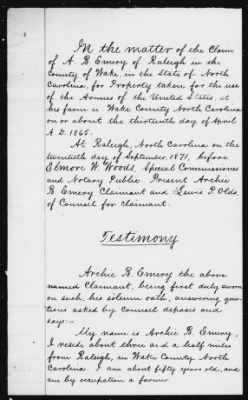 In the matter of the Claim
of A. B. Emery of Raleigh in the
County of Wake, in the State of North
Carolina, for Property taken for the use
of the Armies of the United States, at
his farm in Wake County North Carolina
on or about the thirteenth day of April
A. D. 1865.
At Raleigh, North Carolina on the
twentieth day of September 1871, before
Elmore W. Woods, Special Commissioner
and Notary Public. Present Archie
B. Emery Claimant and Lewis P. Olds,
of Counsel for claimant.
Testimony
Archie B. Emery the above
named Claimant, being first duly sworn
on such, his solemn oath, answering ques
tions asked by counsel deposes and
says:-
My name is Archie B. Emery.
I reside about three and a half miles
from Raleigh, in Wake County North
Carolina. I am about fifty years old, and
am by occupation a farmer